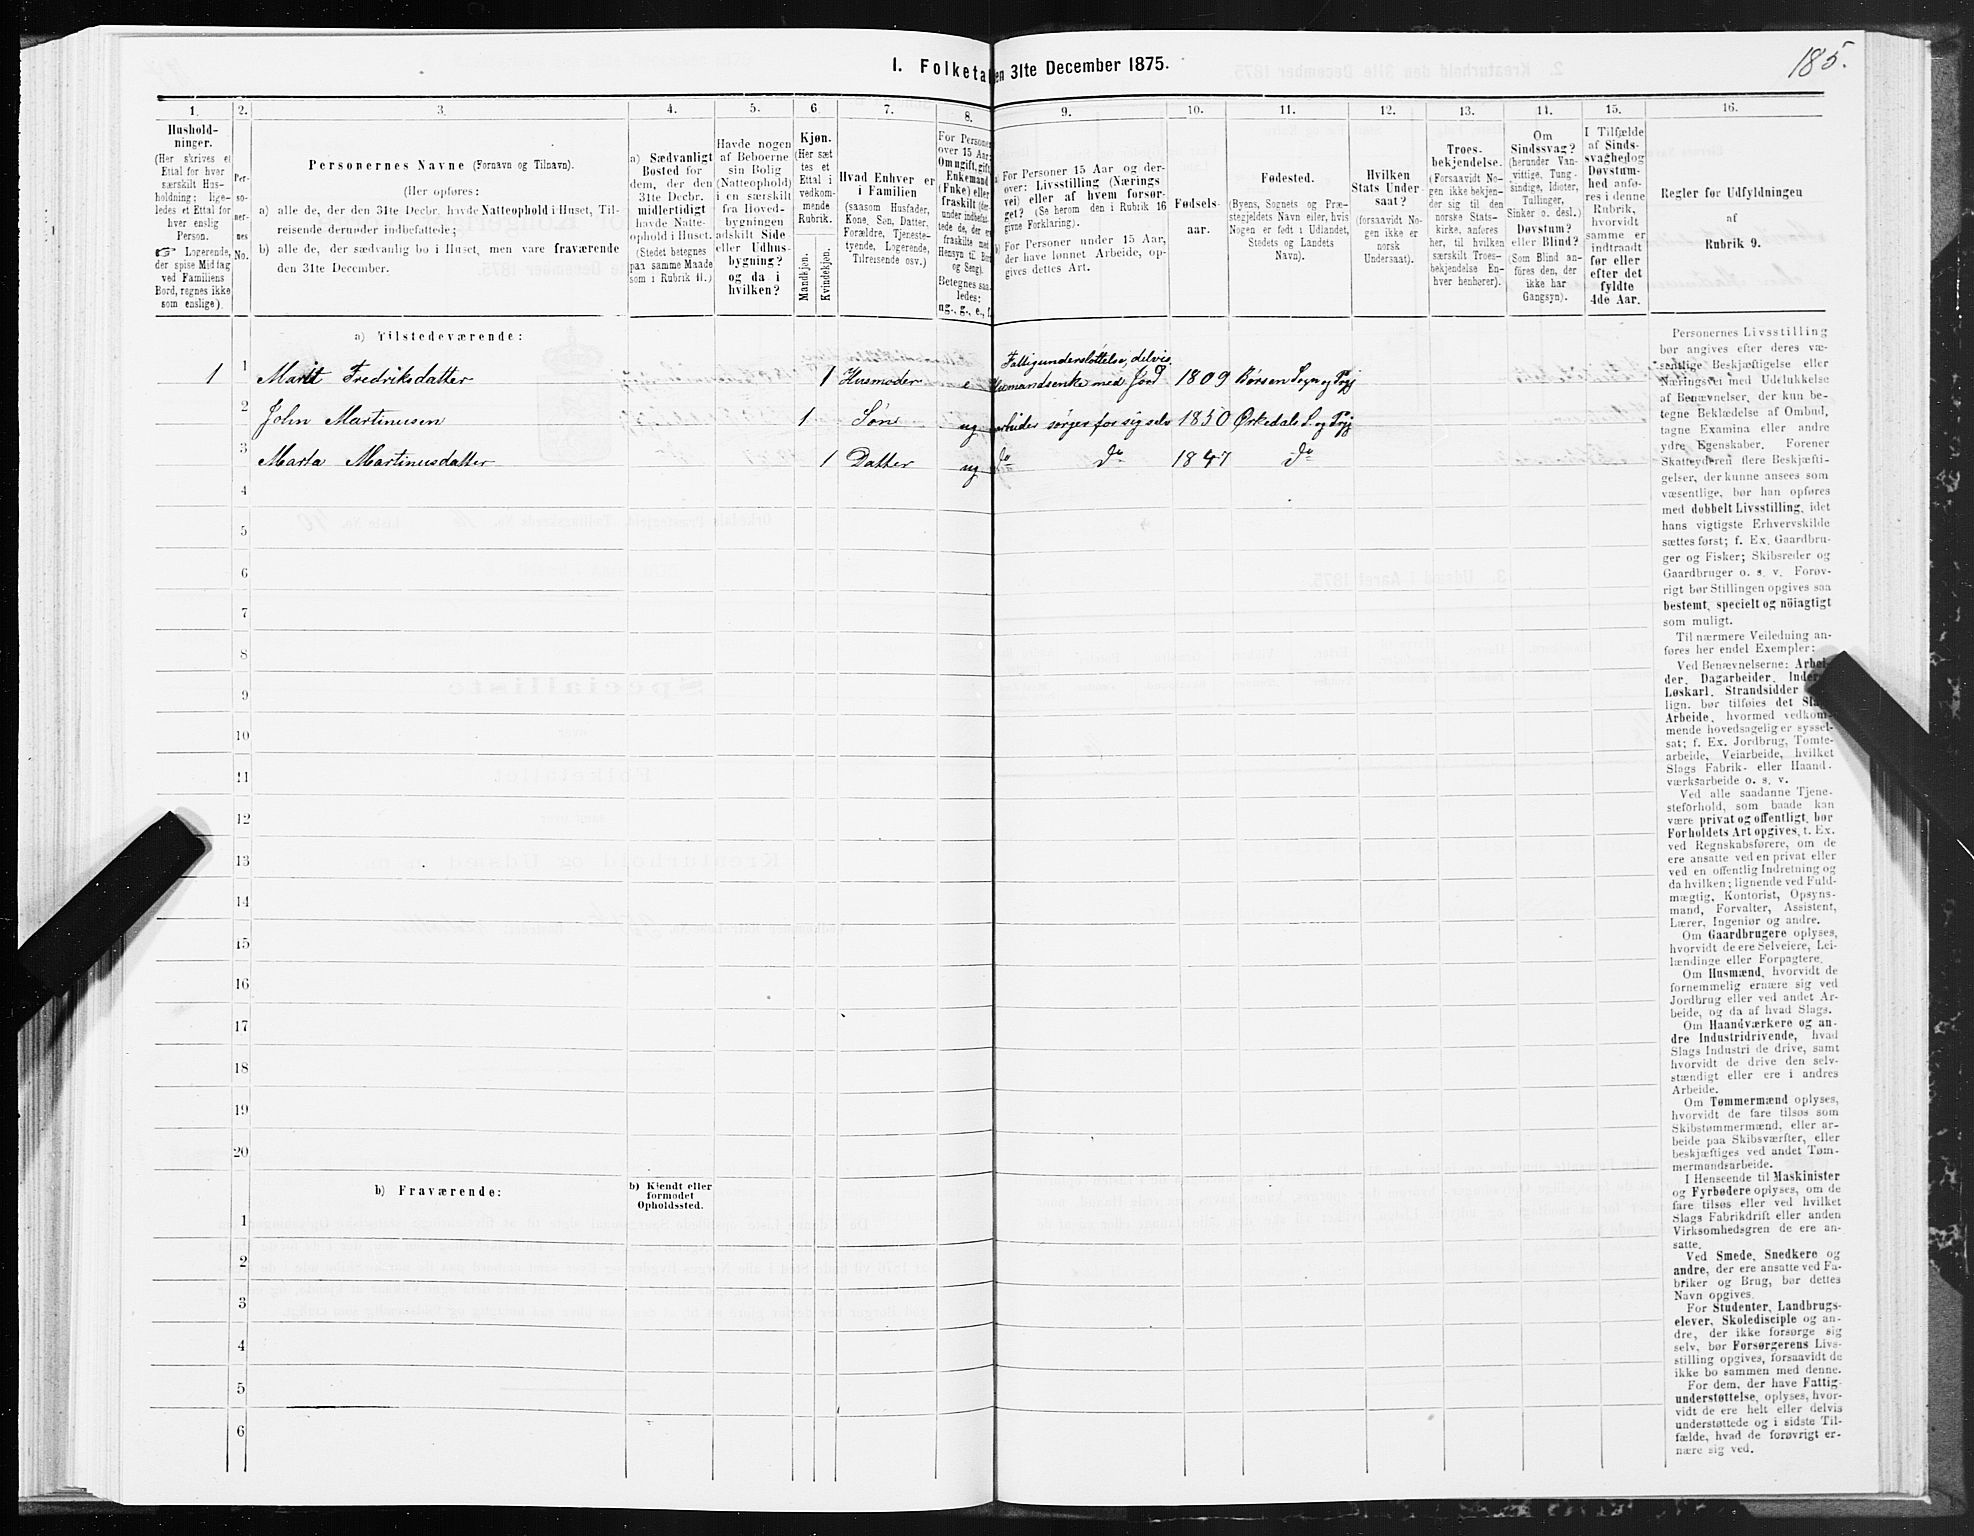 185.
1. Folketal den 31te December 1875.
1. 2. 3. 4. 5. 6 7. 8. 9. 10. 11. 12. 13. 14. 15. 16.
Hushold-
ninger.
(Her skrives et
Ettal for hver
særskilt Hus-
holdning; lige-
ledes et Ettal for
hver enslig
Person.
☞ Logerende,
der spise Middag
ved Familiens
Bord, regnes ikke
som enslige).
Per-
so-
ner-
nes
No.
Personernes Navne (Fornavn og Tilnavn).
(Her opføres:
a) alle de, der den 31te Decbr. havde Natteophold i Huset, Til-
reisende derunder indbefattede;
b) alle de, der sædvanlig bo i Huset, men vare fraværende
den 31te December.
a) Sædvanligt
Bosted for
dem, der den
31te Decbr.
midlertidigt
havde Natte-
ophold i Huset.
(Stedet betegnes
paa samme Maade
som i Rubrik 11.)
Havde nogen
af Beboerne
sin Bolig
(Natteophold)
i en særskilt
fra Hoved-
bygningen
adskilt Side
eller Udhus-
bygning?
og da i
hvilken?
Kjøn.
(Her sæt
tes et
Ettal i
vedkom-
mende
Rubrik.
Mandkjøn.
Kvindekjøn.
Hvad Enhver er
i Familien
(saasom Husfader,
Kone, Søn, Datter,
Forældre, Tjeneste-
tyende, Logerende,
Tilreisende osv.)
For Personer
over 15 Aar:
Om ugift, gift,
Enkemand
(Enke) eller
fraskilt
Betegnes saa-
ledes:
ug., g., e., f.
a) For Personer 15 Aar og der-
over: Livsstilling (Nærings
vei) eller af hvem forsør-
get? (Se herom den i Rubrik 16
givne Forklaring).
b) For Personer under 15 Aar,
der have lønnet Arbeide, op-
gives dettes Art.
Fødsels-
aar.
Fødested.
(Byens, Sognets og Præ-
stegjeldets Navn eller, hvis
Nogen er født i Udlandet,
Stedets og Landets
Navn).
Hvilken
Stats Under-
saat?
(forsaavidt No-
gen ikke er
norsk
Undersaat).
Troes-
bekjendelse.
(Forsaavidt No-
gen ikke bekjen-
der sig til den
norske Stats-
kirke, anføres
her, til hvilken
særskilt Troes-
bekjendelse En-
hver henhører).
Om
Sindssvag?
(herunder Van-
vittige, Tung-
sindige, Idioter,
Tullinger,
Sinker o. desl.)
Døvstum?
eller Blind?
(Som Blind an-
føres den, der
ikke har
Gangsyn).
I Tilfælde
af Sinds-
svaghed og
Døvstum-
hed anfø-
res i denne
Rubrik,
hvorvidt
samme er
indtraadt
før eller
efter det
fyldte
4de Aar.
Regler for Udfyldningen
af
Rubrik 9.
a) Tilstedeværende:
1 1 Marit Fredriksdatter 1 Husmoder e Fattigunderstøttelse, delvis Husmandsenke med Jord 1809 Børsen Sogn og Prgj
2 John Martinusen 1 Søn ug arbeider sørger for sig selv 1850 Ørkedals S. og Prgj
3 Marta Martinusdatter 1 Datter ug do do 1847 do
4
5
6
7
8
9
10
11
12
13
14
15
16
17
18
19
20
b) Fraværende:
b) Kjendt eller
formodet
Opholdssted.
1
2
3
4
5
6
Personernes Livsstilling
bør angives efter deres væ-
sentlige Beskjæftigelse eller
Næringsvei med Udelukkelse
af Benævnelser, der kun be-
tegne Beklædelse af Ombud,
tagne Examina eller andre
ydre Egenskaber. Forener
Skatteyderen flere Beskjæfti-
gelser, der kunne ansees som
væsentlige, bør han opføres
med dobbelt Livsstilling, idet
hans vigtigste Erhvervskilde
sættes først; f. Ex. Gaardbru-
ger og Fisker; Skibsreder og
Gaardbruger o. s. v. Forøv-
rigt bør Stillingen opgives saa
bestemt, specielt og nöiagtigt
som muligt.
Til nærmere Veiledning an-
føres her endel Exempler:
Ved Benævnelserne: Arbei-
der, Dagarbeider, Inderst,
Løskarl, Strandsidder
lign. bør tilføies det Slags
Arbeide, hvormed vedkom-
mende hovedsagelig er syssel-
sat; f. Ex. Jordbrug, Tomte-
arbeide, Veiarbeide, hvilket
Slags Fabrik- eller Haand-
værksarbeide o. s. v.
Ved alle saadanne Tjene-
steforhold, som baade kan
være privat og offentligt, bør
Forholdets Art opgives, t. Ex.
ved Regnskabsførere, om de
ere ansatte ved en privat eller
ved en offentlig Indretning og
da hvilken; lignende ved Fuld-
mægtig, Kontorist, Opsyns-
mand, Forvalter, Assistent,
Lærer, Ingeniør og andre.
Om Gaardbrugere oplyses,
hvorvidt de ere Selveiere, Lei-
lændinge eller Forpagtere.
Om Husmænd, hvorvidt de
fornemmelig ernære sig ved
Jordbrug eller ved andet Ar-
beide, og da af hvad Slags.
Om Haandværkere og an-
dre Industridrivende, hvad
Slags Industri de drive, samt
hvorvidt de drive den selv-
stændigt eller ere i andres
Arbeide.
Om Tømmermænd oplyses,
hvorvidt de fare tilsøs som
Skibstømmermænd, eller ar-
beide paa Skibsværfter, eller
beskjæftiges ved andet Tøm-
mermandsarbeide.
I Henseende til Maskinister
og Fyrbødere oplyses, om de
fare tilsøs eller ved hvilket
Slags Fabrikdrift eller anden
Virksomhedsgren de ere an-
satte.
Ved Smede, Snedkere og
andre, der ere ansatte ved Fa-
briker og Brug, bør dettes
Navn opgives.
For Studenter, Landbrugs-
elever, Skoledisciple og an-
dre, der ikke forsørge sig
selv, bør Forsørgerens Livs-
stilling opgives, forsaavidt de
ikke bo sammen med denne.
For dem, der have Fattig-
understøttelse, oplyses, hvor-
vidt de ere helt eller delvis
understøttede og i sidste Til-
fælde, hvad de forøvrigt er-
nære sig ved.